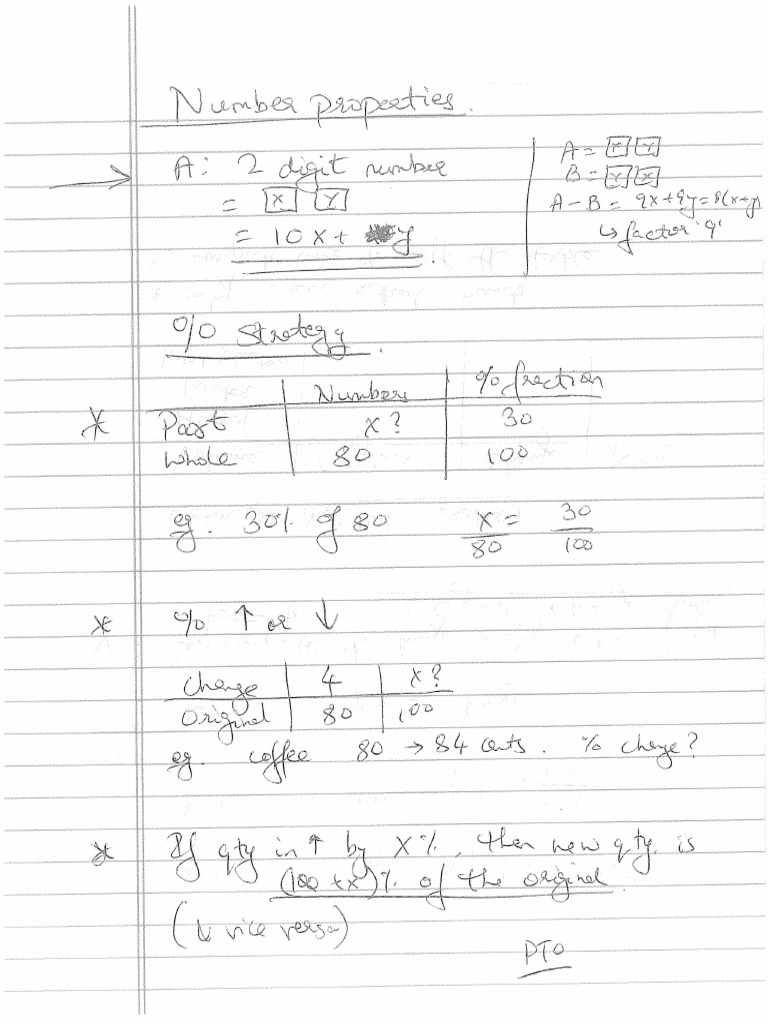 Number properties.
A: 2 digit number
= X Y
= 10x + y
A = X Y
B = Y X
A - B = 9x + 9y = 9(x+y)
↳ factor '9'
% Strategy.
Numbers % fraction
* Part x? 30
Whole 80 100
eg. 30% of 80 x/80 = 30/100
* % ↑ or ↓
Change 4 x?
Original 80 100
eg. coffee 80 → 84 cents. % change?
* If qty in ↑ by X%, then new qty. is
(100 + x)% of the original
(↓ vice versa)
PTO